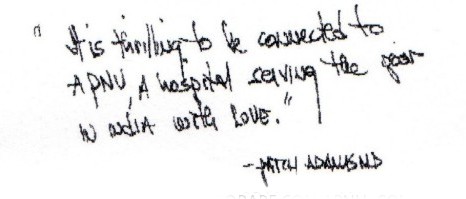 "It is thrilling to be connected to
APNV, A hospital serving the poor
IN INDIA with LOVE."
-PATCH ADAMS MD